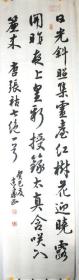 日光斜照集灵台红树花迎晓露
开昨夜上皇新授箓太真含笑入
帘来 唐张祜七绝一首